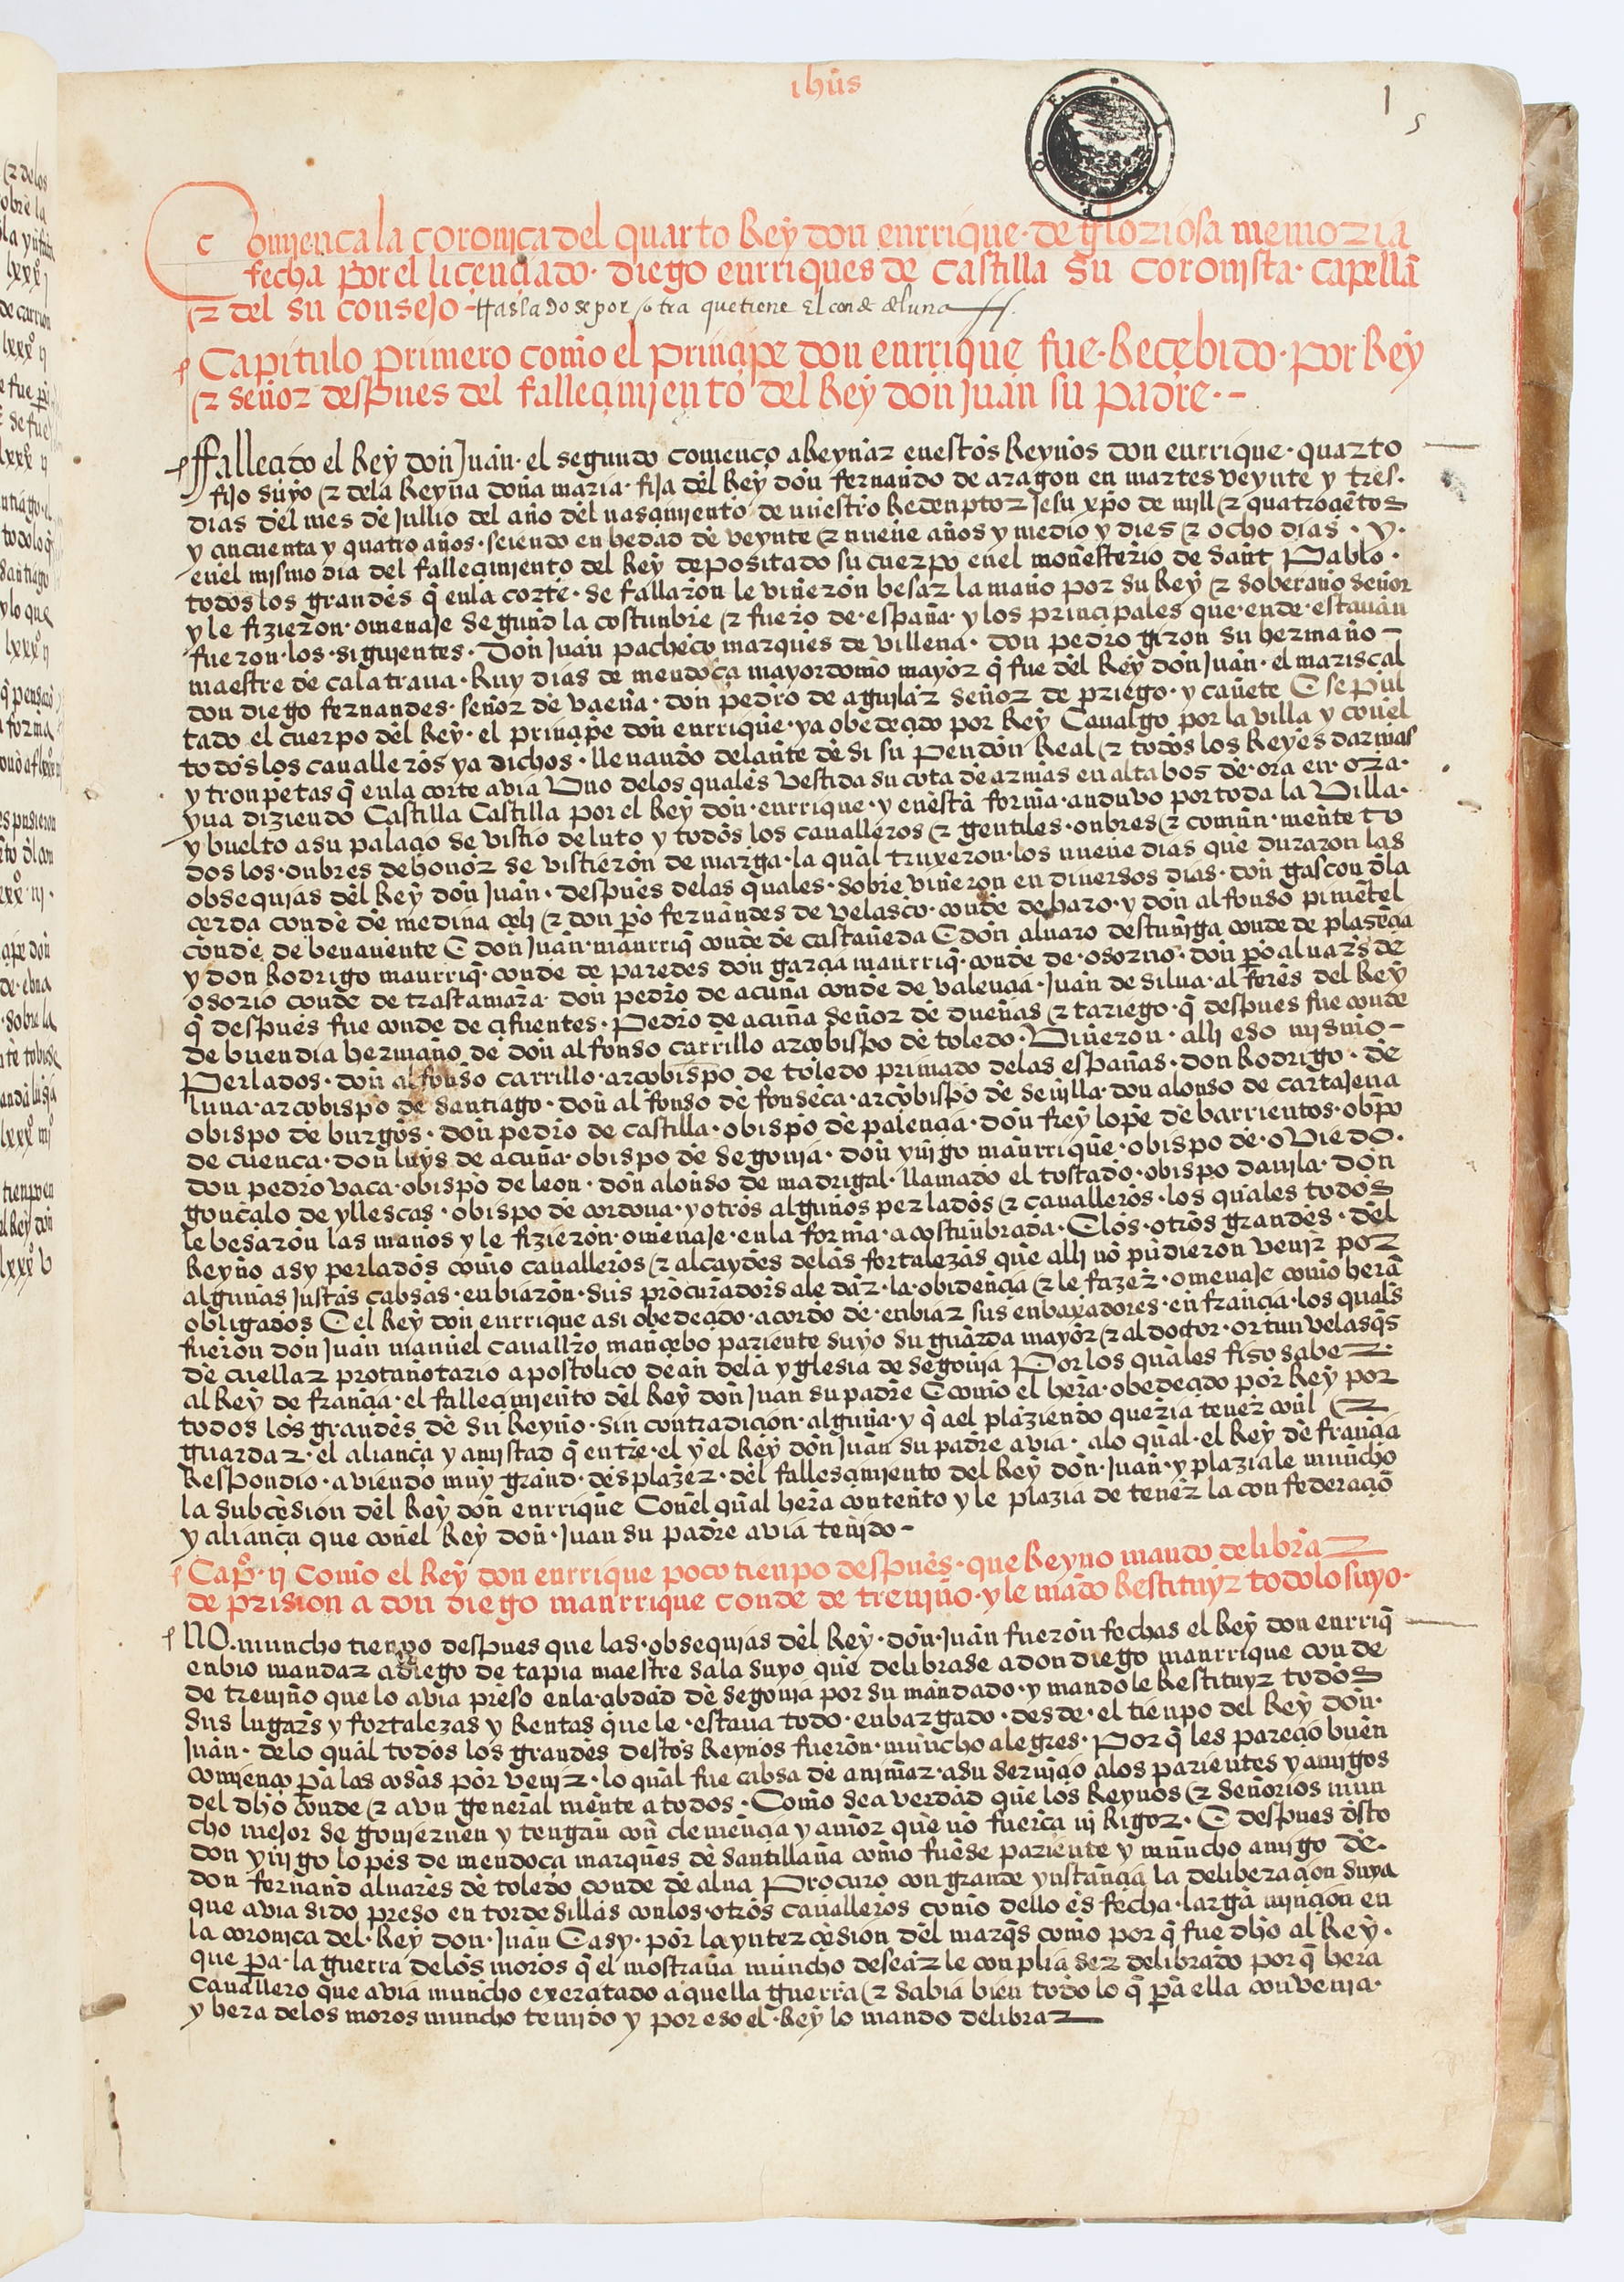 ihũs
1
5
Comiença la coronica del quarto Rey don enrrique · de gloriosa memoria
fecha por el licenciado · diego enrriques de castilla su coronista · capellã
⁊ del su consejo - trasladose por otra que tiene el conde de luna
Capitulo primero como el principe don enrrique fue · Recebido · por Rey
⁊ señor despues del fallecimiento del Rey don juan su padre · -
Fallecido el Rey don juan · el segundo començo a Reynar en estos Reynos don enrrique · quarto
fijo suyo ⁊ dela Reyna doña maria · fija del Rey don fernando de aragon en martes veynte y tres ·
dias del mes de jullio del año del nascimiento de nuestro Redenptor jesu xp̃o de mill ⁊ quatroçẽtos
y cincuenta y quatro años · seiendo en hedad de veynte ⁊ nueue años y medio y dies ⁊ ocho dias · y ·
enel mismo dia del fallecimiento del Rey depositado su cuerpo enel monesterio de sant Pablo ·
todos los grandes q̃ enla corte · se fallaron le vinieron besar la mano por su Rey ⁊ soberano señor
y le fizieron · omenaje segund la costunbre ⁊ fuero de · españa · y los principales que · ende · estauan
fueron · los · siguientes · Don juan pacheco marques de villena · don pedro giron su hermano -
maestre de calatraua · Ruy dias de mendoça mayordomo mayor q̃ fue del Rey don juan · el mariscal
don diego fernandes · señor de vaena · don pedro de aguilar señor de priego · y cañete E sepul
tado el cuerpo del Rey · el principe don enrrique · ya obedecido por Rey Caualgo por la villa y conel
todos los caualleros ya dichos · lleuando delante de si su Pendon Real ⁊ todos los Reyes darmas
y tronpetas q̃ enla corte avia Uno delos quales vestida su cota de armas en alta bos de · ora en · ora ·
yua diziendo Castilla Castilla por el Rey don · enrrique · y en esta forma · anduvo por toda la Villa ·
y buelto a su palacio se vistio de luto y todos los caualleros ⁊ gentiles · onbres ⁊ comun · mente to
dos los · onbres de honor se vistieron de marga · la qual truxeron · los nueue dias que duraron las
obsequias del Rey don juan · despues delas quales · sobre vinieron en diuersos dias · don gascon dla
cerda conde de medina celi ⁊ don pº fernandes de velasco · conde de haro · y don alfonso pimẽtel
conde de benauente E don juan · manrriq̃ conde de castañeda E don aluaro destuñiga conde de plasẽcia
y don Rodrigo manrriq̃ · conde de paredes don garcia manrriq̃ · conde de · osorno · don pº aluar̃s de
osorio conde de trastamara · don pedro de acuña conde de valencia · juan de silua · alferes del Rey
q̃ despues fue conde de cifuentes · Pedro de acuña señor de dueñas ⁊ tariego · q̃ despues fue conde
de buendia hermano de don alfonso carrillo arcobispo de toledo · Vinieron · alli eso mismo -
Perlados · don alfonso carrillo · arcobispo de toledo primado delas españas · don Rodrigo · de
luna · arcobispo de santiago · don alfonso de fonseca · arcobispo de seuilla · don alonso de cartajena
obispo de burgos · don pedro de castilla · obispo de palencia · don frey lope de barrientos · obp̃o
de cuenca · don luys de acuña · obispo de segouia · don yñigo manrrique · obispo de · oviedo ·
don pedro vaca · obispo de leon · don alonso de madrigal · llamado el tostado · obispo dauila · don
gonçalo de yllescas · obispo de cordoua · y otros algunos perlados ⁊ caualleros · los quales todos
le besaron las manos y le fizieron · omenaje · enla forma · acostunbrada · E los · otros grandes · del
Reyno asy perlados como caualleros ⁊ alcaydes delas fortalezas que alli no pudieron venir por
algunas justas cabsas · enbiaron · sus procuradors ale dar · la · obidencia ⁊ le fazer · omenaje como hera
obligados E el Rey don enrrique asi obedecido · acordo de · enbiar sus enbaxadores · en francia · los quals
fueron don juan manuel cauallro mancebo pariente suyo su guarda mayor ⁊ al doctor · ortun velasq̃s
de cuellar protonotario apostolico dean dela yglesia de segouia Por los quales fiso saber ·
al Rey de francia · el fallecimiento del Rey don juan su padre E como el hera · obedecido por Rey por
todos los grandes de su Reyno · sin contradicion · alguna · y q̃ ael plaziendo queria tener conl ⁊
guardar · el aliança y amistad q̃ entre · el y el Rey don juan su padre avia · alo qual · el Rey de francia
Respondio · aviendo muy grand · desplazer · del fallescimiento del Rey don · juan · y plaziale muncho
la subcesion del Rey don enrrique Conel qual hera contento y le plazia de tener la confederaciõ
y aliança que conel Rey don · juan su padre avia tenido -
Capº · ij Como el Rey don enrrique poco tienpo despues · que Reyno mando delibrar
de prision a don diego manrrique conde de treuiño · y le mãdo Restituyr todo lo suyo ·
NO · muncho tienpo despues que las · obsequias del Rey · don · juan fueron fechas el Rey don enrriq̃
enbio mandar a diego de tapia maestre sala suyo que delibrase a don diego manrrique conde
de treuiño que lo avia preso enla · cibdad de segouia por su mandado · y mandole Restituyr todos
sus lugar̃s y fortalezas y Rentas que le · estaua todo · enbargado · desde · el tienpo del Rey don ·
juan · delo qual todos los grandes destos Reynos fueron · muncho alegres · Por q̃ les parecio buen
comienço pã las cosas por venir · lo qual fue cabsa de animar · a su seruicio alos parientes y amigos
del dho conde ⁊ avn general mente a todos · Como sea verdad que los Reynos ⁊ señorios mun
cho mejor se gouiernen y tengan con clemencia y amor que no fuerça nj Rigor · E despues dsto
don yñigo lopes de mendoça marques de santillana como fuese pariente y muncho amigo de ·
don fernand aluares de toledo conde de alua Procuro con grande ynstancia la deliberacion suya
que avia sido preso en tordesillas con los · otros caualleros como dello es fecha · larga mincion en
la coronica del · Rey don · juan E asy · por la yntercesion del marq̃s como por q̃ fue dho al Rey ·
que pã · la guerra delos moros q̃ el mostraua muncho desear le conplia ser delibrado por q̃ hera
Cauallero que avia muncho exercitado aquella guerra ⁊ sabia bien todo lo q̃ pã ella convenia ·
y hera delos moros muncho temido y por eso el · Rey lo mando delibrar